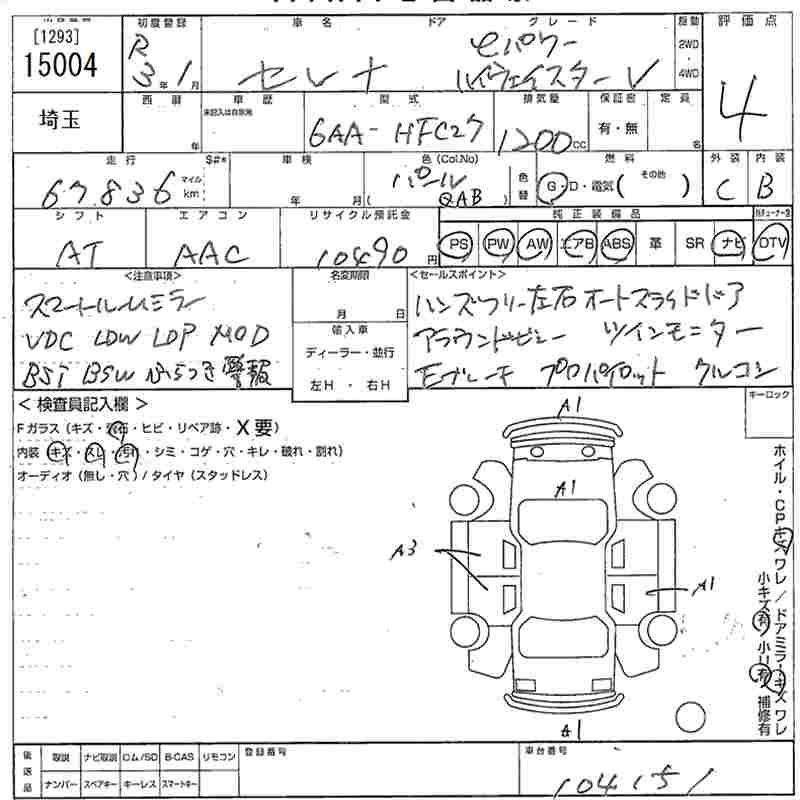 [1293]
15004
初度登録
車名
ドア
グレード
駆動
評価点
R 3年1月
セレナ
eパワー
ハイウェイスターV
2WD
4WD
4
埼玉
西暦
年
車歴
未記入は自家用
型式
6AA-HFC27
排気量
1200cc
保証書
有・無
定員
名
走行
67,836
マイル
km
$#*
車検
年 月
色(Col.No)
パール
(QAB)
色替
燃料
G・D・電気( その他 )
外装
C
内装
B
シフト
AT
エアコン
AAC
リサイクル預託金
10490円
純正装備品
PS PW AW エアB ABS 革 SR ナビ DTV
<注意事項>
スマートルームミラー
VDC LDW LDP MOD
BSI BSW ふらつき警報
名変期限
月 日
輸入車
ディーラー・並行
左H・右H
<セールスポイント>
ハンズフリー左右オートスライドドア
アラウンドビュー ツインモニター
Eブレーキ プロパイロット クルコン
<検査員記入欄>
Fガラス(キズ・飛石・ヒビ・リペア跡・X要)
内装(キズ・スレ・汚れ・シミ・コゲ・穴・キレ・破れ・割れ)
オーディオ(無し・穴)/タイヤ(スタッドレス)
キーロック
A1
A1
A3
A1
A1
ホイル・CPキズワレ/ドアミラーキズワレ
小キズ有 小凹有 補修有
後送品
取説 ナビ取説 ロム/SD B-CAS リモコン
ナンバー スペアキー キーレス スマートキー
登録番号
車台番号
104151